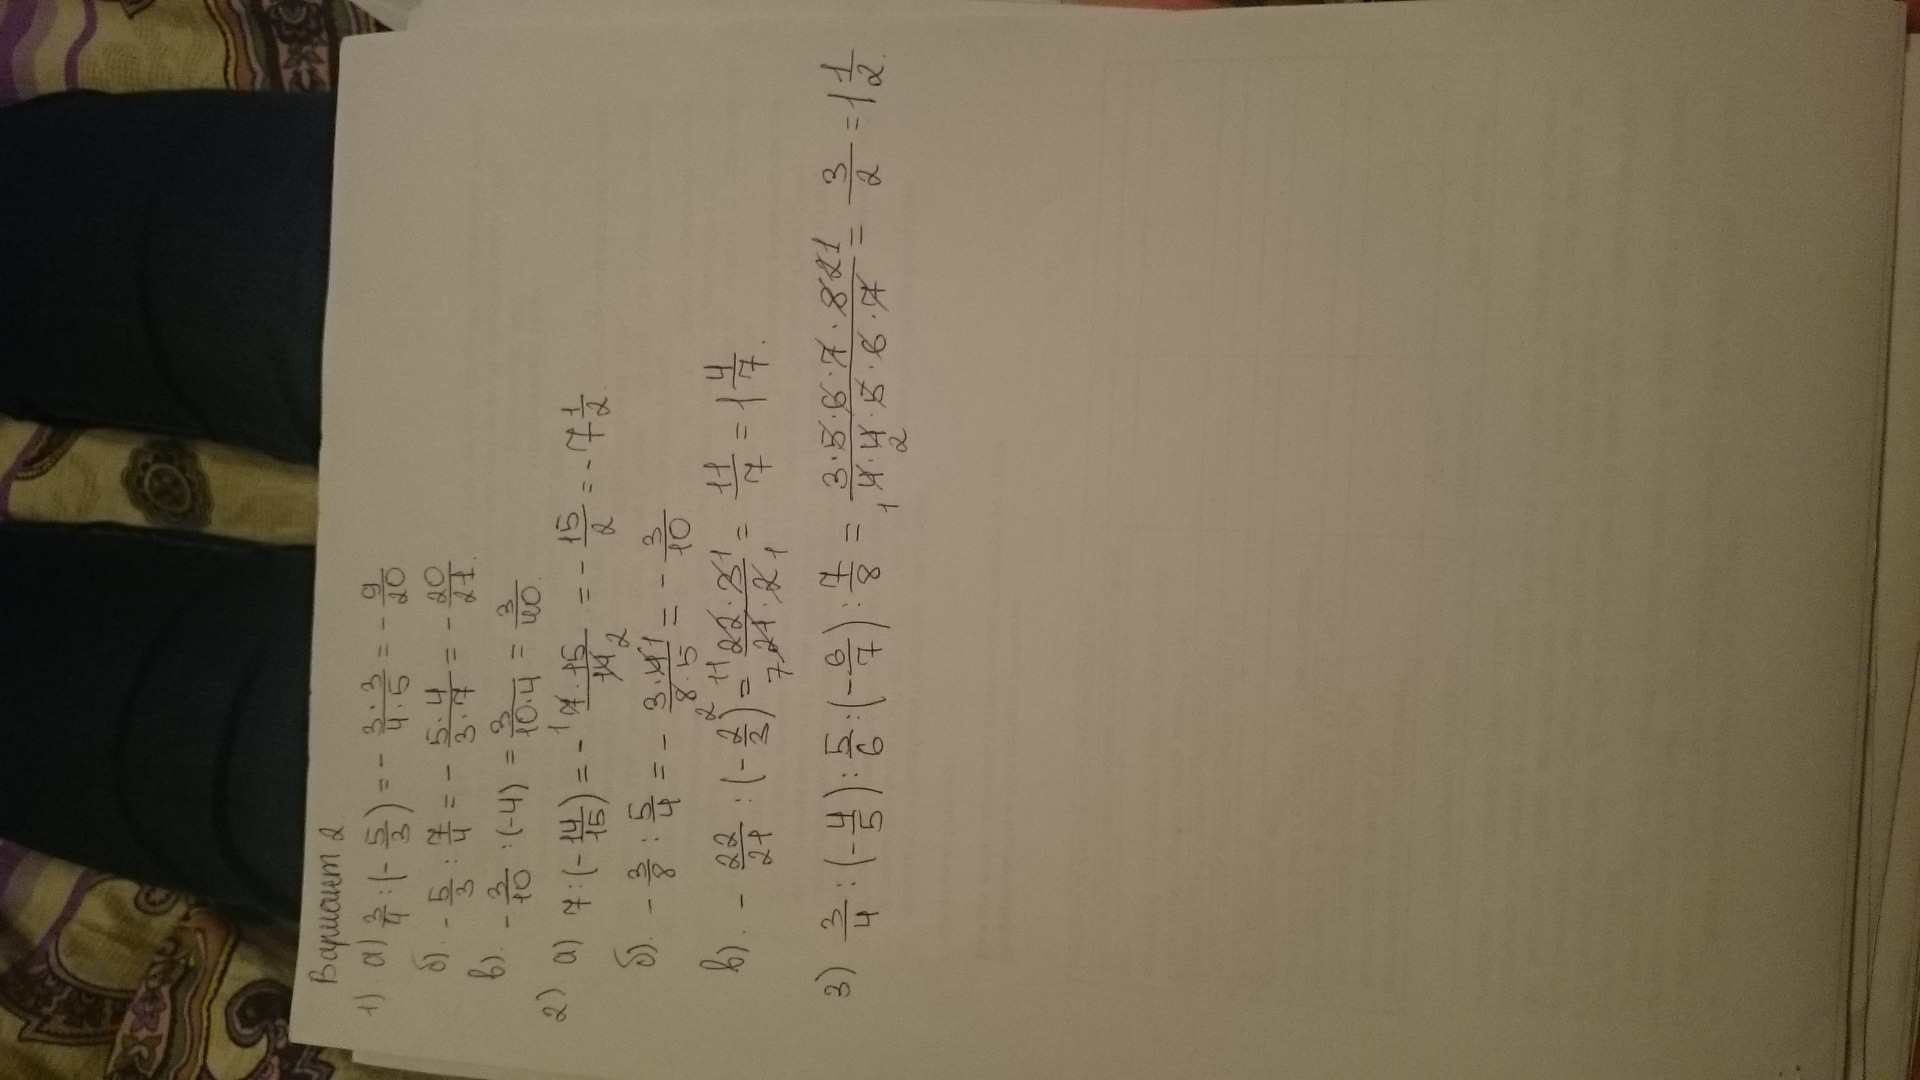 Вариант 2
1) а) 3/4 : (- 5/3) = - 3·3/4·5 = - 9/20
б). - 5/3 : 7/4 = - 5·4/3·7 = - 20/21.
в). - 3/10 : (-4) = 3/10·4 = 3/40.
2) а) 7 : (- 14/15) = - 1 7·15/14 2 = - 15/2 = - 7 1/2.
б). - 3/8 : 5/4 = - 3·4 1/2 8·5 = - 3/10
в). - 22/21 : (- 2/3) = 11 22·3 1/7 21·2 1 = 11/7 = 1 4/7.
3) 3/4 : (- 4/5) : 5/6 : (- 6/7) : 7/8 = 3·5·6·7·8 2 1/1 4·4 2·5·6·7 = 3/2 = 1 1/2.